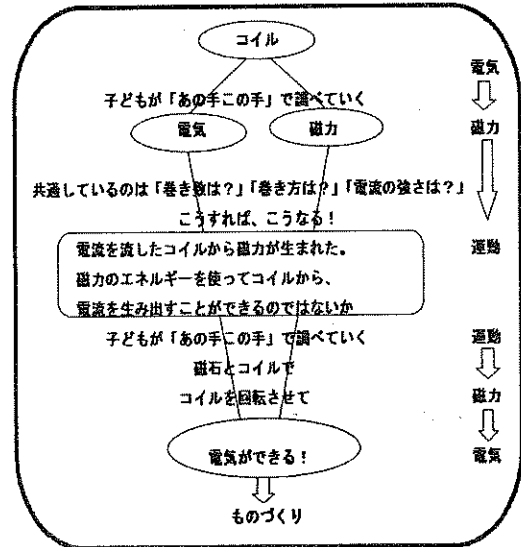 コイル
電気
子どもが「あの手この手」で調べていく
電気
磁力
磁力
共通しているのは「巻き数は？」「巻き方は？」「電流の強さは？」
こうすれば、こうなる！
電流を流したコイルから磁力が生まれた。
運動
磁力のエネルギーを使ってコイルから、
電流を生み出すことができるのではないか
子どもが「あの手この手」で調べていく
運動
磁石とコイルで
コイルを回転させて
磁力
電気ができる！
電気
ものづくり